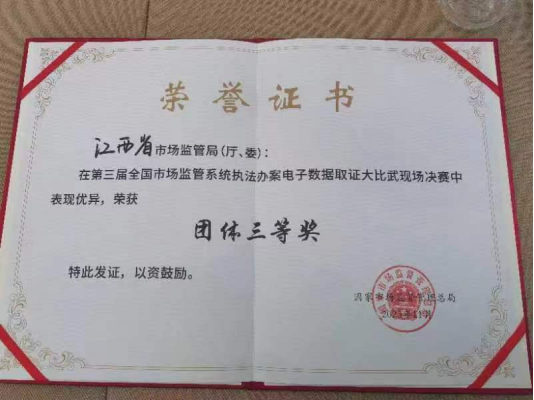 荣誉证书
江西省市场监管局(厅、委)：
在第三届全国市场监管系统执法办案电子数据取证大比武现场决赛中
表现优异，荣获
团体三等奖
特此发证，以资鼓励。
国家市场监督管理总局